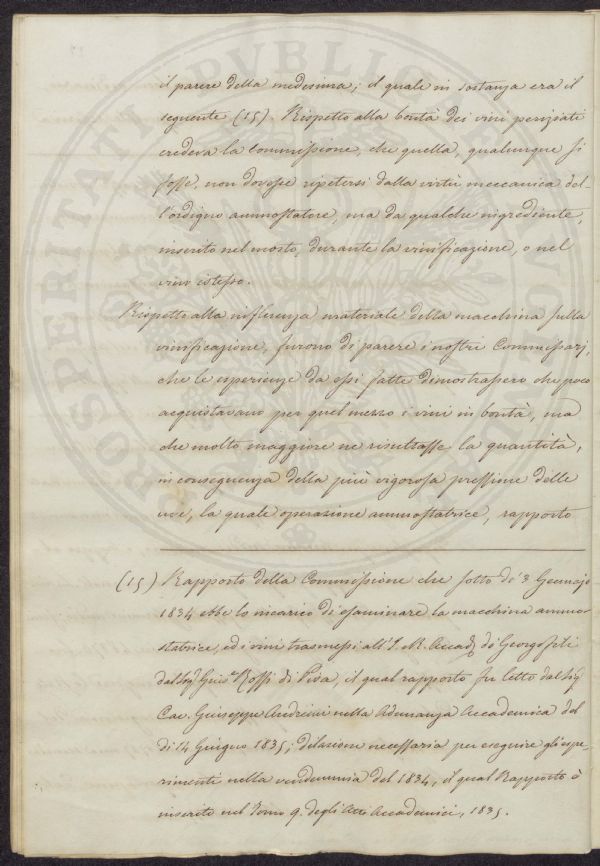 il parere della medesima; il quale in sostanza era il
seguente (15). Rispetto alla bontà dei vini periziati
credeva la Commissione, che quella, qualunque si
fosse, non dovesse ripetersi dalla virtù meccanica del-
l'ordigno ammostatore, ma da qualche ingrediente,
inserito nel mosto, durante la vinificazione, o nel
vino istesso.
Rispetto alla influenza materiale della macchina sulla
vinificazione, furono di parere i nostri Commissarj,
che le esperienze da essi fatte dimostrassero che poco
acquistavano per quel mezzo i vini in bontà, ma
che molto maggiore ne risultasse la quantità,
in conseguenza della più vigorosa pressione delle
uve, la quale operazione ammostatrice, rapporto
(15) Rapporto della Commissione che sotto dì 3 Gennajo
1834 ebbe lo incarico di esaminare la macchina ammo-
statrice, ed i vini trasmessi all'I. R. Accad. dei Georgofili
dal Sig. Rossi di Pisa, il qual rapporto fu letto dal Sig.
Cav. Giuseppe Andreini nella Adunanza Accademica del
dì 14 Giugno 1835; dilazione necessaria per eseguire gli espe-
rimenti nella vendemmia del 1834, il qual Rapporto è
inserito nel Tomo 9. degli Atti Accademici, 1835.
PROSPERITATI PUBLICAE AUGENDAE